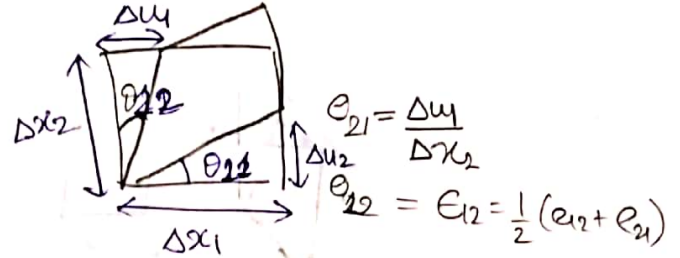 Δu₁
θ₁₂
Δx₂
θ₂₁
Δu₂
Δx₁
e₂₁ = Δu₁/Δx₂
e₁₂ = ε₁₂ = 1/2 (e₁₂ + e₂₁)